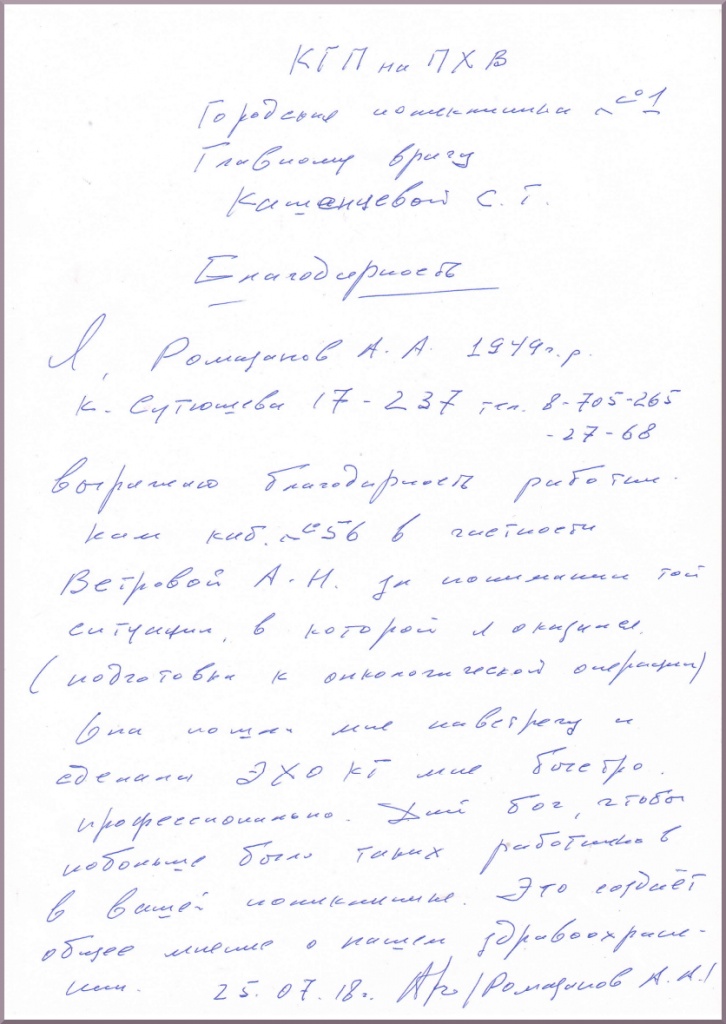 КГП на ПХВ
Городская поликлиника №1
Главному врачу
Кашенцевой С. Т.
Благодарность
Я, Ромазанов А. А. 1949г.р.
к. Сутюшева 17-237 тел. 8-705-265
-27-68
выражаю благодарность работни-
кам каб. №56 в частности
Ветровой А.Н. за понимании той
ситуации, в которой я оказался.
(подготовка к онкологической операции)
Она пошла мне навстречу и
сделала ЭХО КГ мне быстро
профессионально. Дай бог, чтобы
побольше было таких работников
в вашей поликлинике. Это создаёт
общее мнение о нашем здравоохране-
нии. 25.07.18г. /Ромазанов А.А./